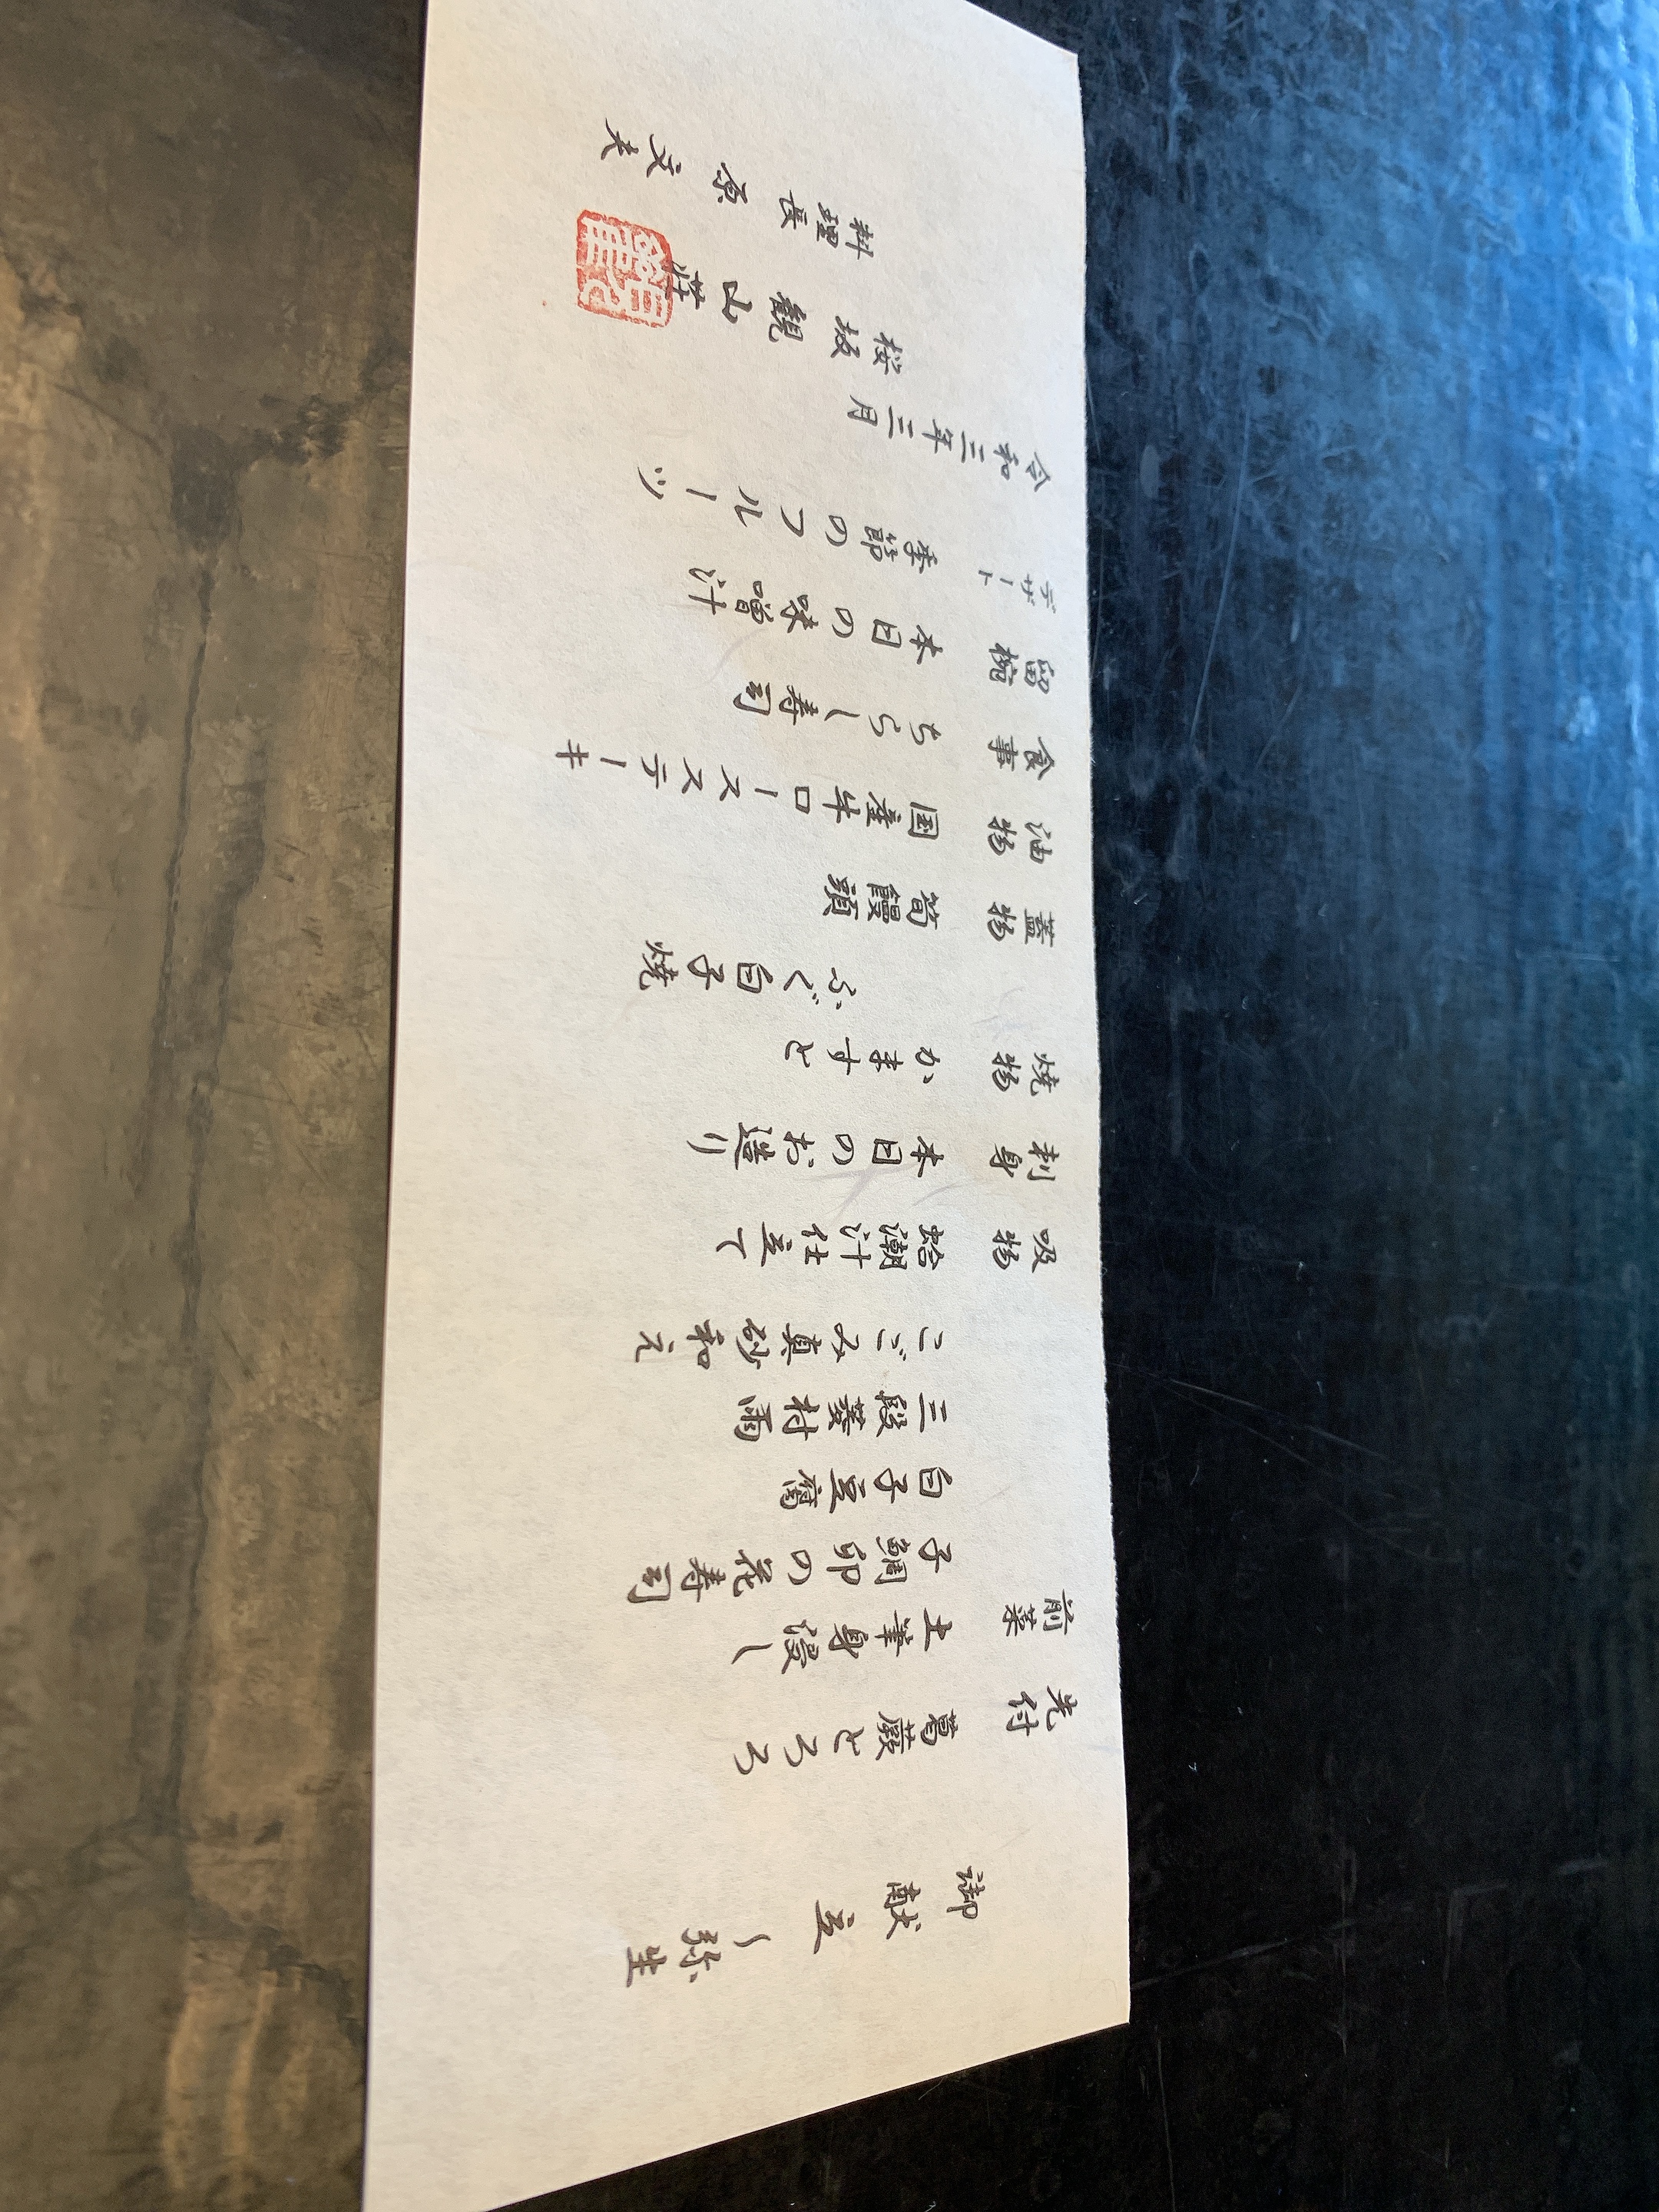 御献立ー弥生
先付 葛蕨とろろ
前菜 土筆身浸し
子鯛卯の花寿司
白子豆腐
三段 村雨
こごみ真砂和え
吸物 蛤潮汁仕立て
刺身 本日のお造り
焼物 かますと
ふぐ白子焼
蓋物 筍饅頭
油物 国産牛ロースステーキ
食事 ちらし寿司
留椀 本日の味噌汁
デザート 季節のフルーツ
令和三年三月
桜坂観山荘
料理長 原 文夫